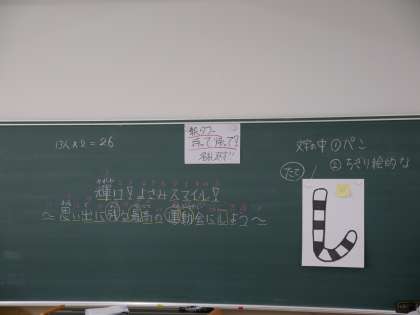 13人×2=26
輝け!よさみスマイル!
～思い出に残る最高の運動会にしよう～
文字の中 ①ペン
②ちぎり絵的な
たて
し